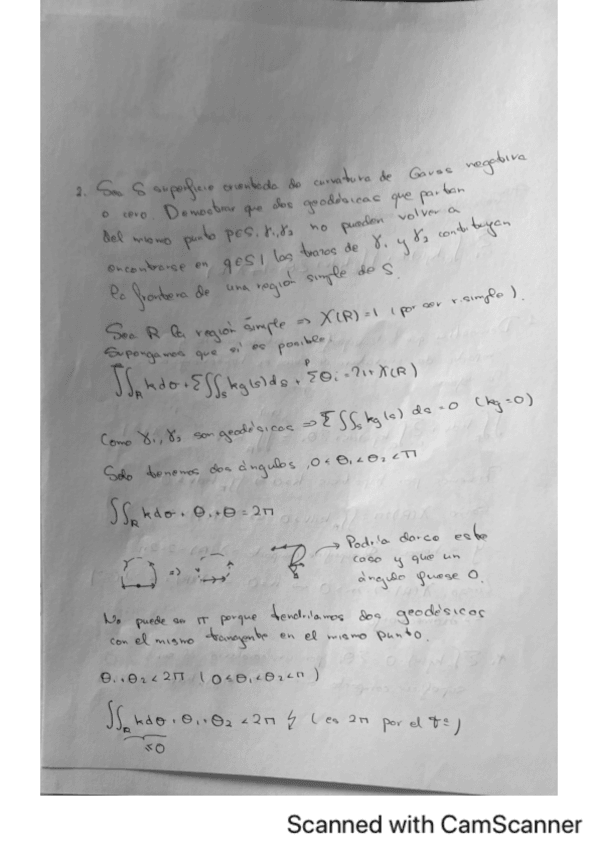 2. Sea S superficie orientada de curvatura de Gauss negativa
o cero. Demostrar que dos geodésicas que partan
del mismo punto p∈S, γ₁, γ₂ no pueden volver a
encontrarse en q∈S / las trazas de γ₁ y γ₂ contribuyen
la frontera de una región simple de S.
Sea R la región simple => X(R)=1 (por ser r. simple).
Supongamos que sí es posible,
∬_R kdσ + Σ∬_S kg(s)ds + Σ^p θi = 2π X(R)
Como γ₁, γ₂ son geodésicas => Σ∬_S kg(s) ds = 0 (kg=0)
Solo tenemos dos ángulos, 0 < θ₁ < θ₂ < π
∬_R kdσ + θ₁ + θ = 2π
=>
→ Podría darse este
caso y que un
ángulo fuese 0.
No puede ser π porque tendríamos dos geodésicas
con el mismo en el mismo punto.
θ₁ + θ₂ < 2π (0 < θ₁ < θ₂ < π)
∬_R kdσ + θ₁ + θ₂ < 2π ↯ (es 2π por el tª)
≤0
Scanned with CamScanner